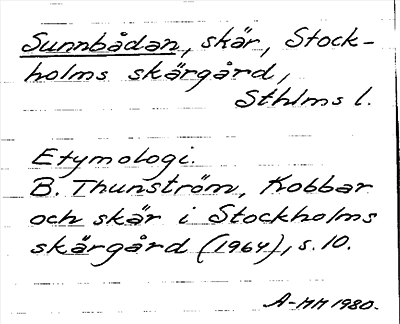 Sunnbådan, skär, Stock-
holms skärgård,
Sthlms l.
Etymologi.
B. Thunström, Kobbar
och skär i Stockholms
skärgård (1964), s. 10.
A-MM 1980.